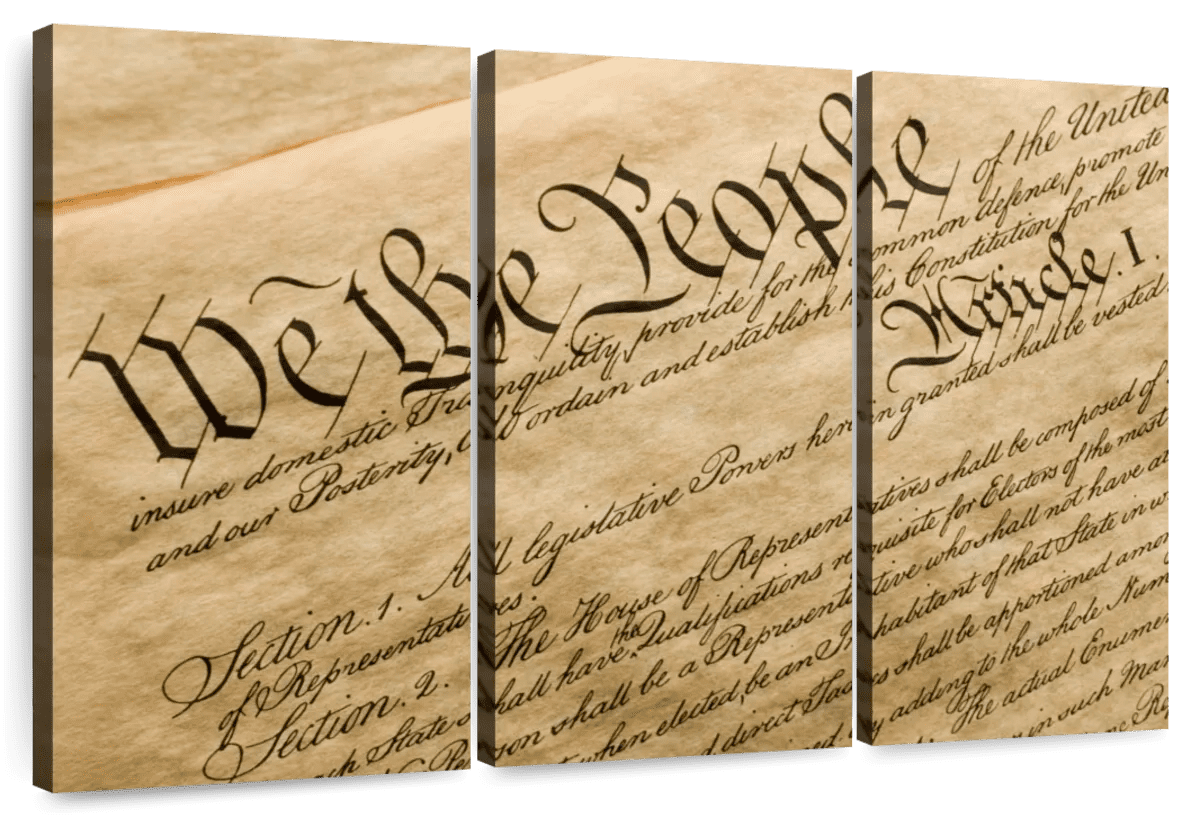 We the People of the United
insure domestic Tranquility, provide for the common defence, promote
and our Posterity, do ordain and establish this Constitution for the Un
Article. I.
Section. 1. All legislative Powers herein granted shall be vested
of Representatives.
Section. 2. The House of Representatives shall be composed of
each State shall have the Qualifications requisite for Electors of the most
No Person shall be a Representative who shall not have at
when elected, be an Inhabitant of that State in w
and direct Taxes shall be apportioned amon
by adding to the whole Num
The actual Enumer
in such Man